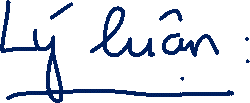 Lý luận: